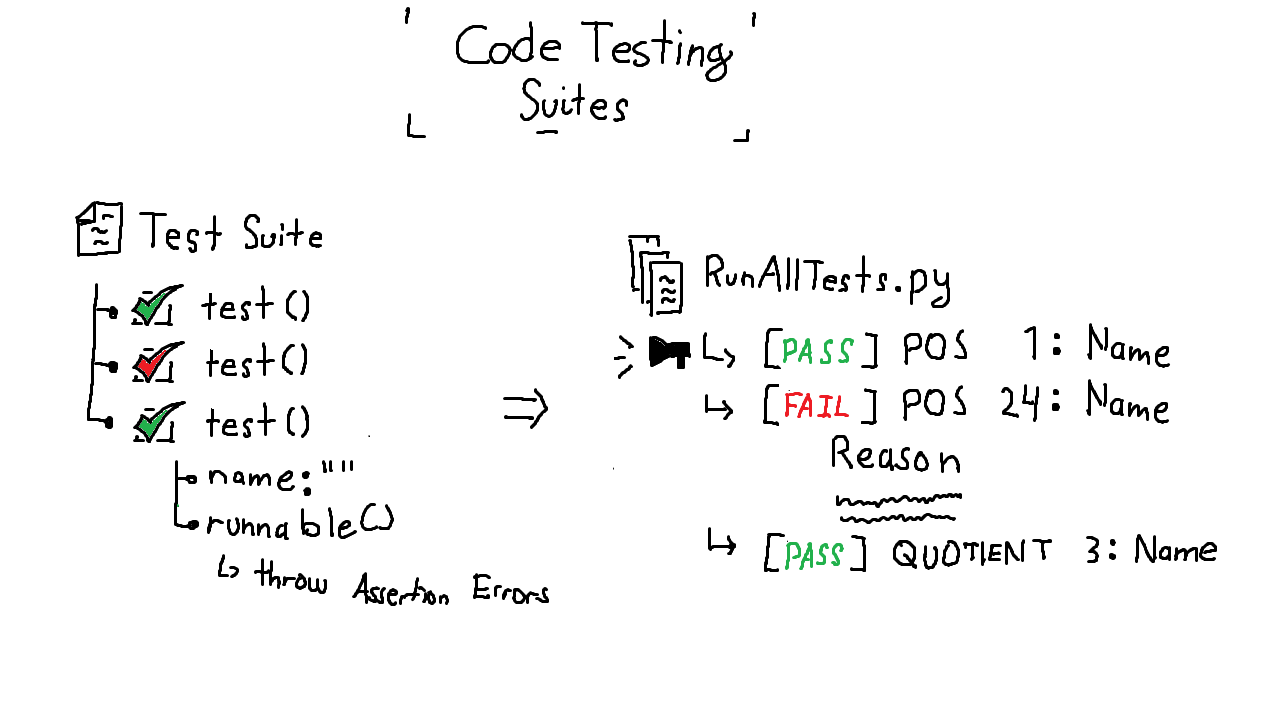 Code Testing
Suites
Test Suite
test()
test()
test()
name:""
runnable()
↳ throw Assertion Errors
RunAllTests.py
↳ [PASS] POS 1: Name
↳ [FAIL] POS 24: Name
Reason
↳ [PASS] QUOTIENT 3: Name